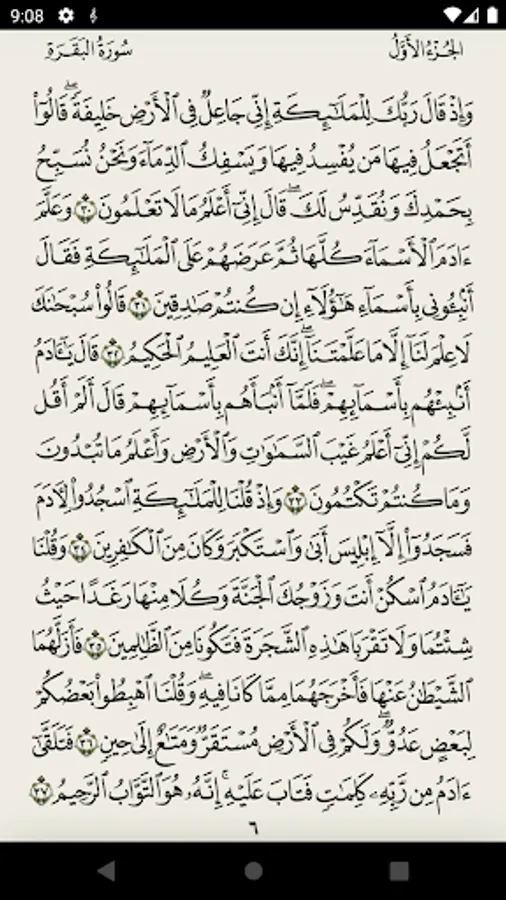 9:08
الجزء الأول سورة البقرة
وَإِذْ قَالَ رَبُّكَ لِلْمَلَٰٓئِكَةِ إِنِّى جَاعِلٌ فِى ٱلْأَرْضِ خَلِيفَةً ۖ قَالُوٓا۟
أَتَجْعَلُ فِيهَا مَن يُفْسِدُ فِيهَا وَيَسْفِكُ ٱلدِّمَآءَ وَنَحْنُ نُسَبِّحُ
بِحَمْدِكَ وَنُقَدِّسُ لَكَ ۖ قَالَ إِنِّىٓ أَعْلَمُ مَا لَا تَعْلَمُونَ ٣٠ وَعَلَّمَ
ءَادَمَ ٱلْأَسْمَآءَ كُلَّهَا ثُمَّ عَرَضَهُمْ عَلَى ٱلْمَلَٰٓئِكَةِ فَقَالَ
أَنۢبِـُٔونِى بِأَسْمَآءِ هَٰٓؤُلَآءِ إِن كُنتُمْ صَٰدِقِينَ ٣١ قَالُوا۟ سُبْحَٰنَكَ
لَا عِلْمَ لَنَآ إِلَّا مَا عَلَّمْتَنَآ ۖ إِنَّكَ أَنتَ ٱلْعَلِيمُ ٱلْحَكِيمُ ٣٢ قَالَ يَٰٓـَٔادَمُ
أَنۢبِئْهُم بِأَسْمَآئِهِمْ ۖ فَلَمَّآ أَنۢبَأَهُم بِأَسْمَآئِهِمْ قَالَ أَلَمْ أَقُل
لَّكُمْ إِنِّىٓ أَعْلَمُ غَيْبَ ٱلسَّمَٰوَٰتِ وَٱلْأَرْضِ وَأَعْلَمُ مَا تُبْدُونَ
وَمَا كُنتُمْ تَكْتُمُونَ ٣٣ وَإِذْ قُلْنَا لِلْمَلَٰٓئِكَةِ ٱسْجُدُوا۟ لِـَٔادَمَ
فَسَجَدُوٓا۟ إِلَّآ إِبْلِيسَ أَبَىٰ وَٱسْتَكْبَرَ وَكَانَ مِنَ ٱلْكَٰفِرِينَ ٣٤ وَقُلْنَا
يَٰٓـَٔادَمُ ٱسْكُنْ أَنتَ وَزَوْجُكَ ٱلْجَنَّةَ وَكُلَا مِنْهَا رَغَدًا حَيْثُ
شِئْتُمَا وَلَا تَقْرَبَا هَٰذِهِ ٱلشَّجَرَةَ فَتَكُونَا مِنَ ٱلظَّٰلِمِينَ ٣٥ فَأَزَلَّهُمَا
ٱلشَّيْطَٰنُ عَنْهَا فَأَخْرَجَهُمَا مِمَّا كَانَا فِيهِ ۖ وَقُلْنَا ٱهْبِطُوا۟ بَعْضُكُمْ
لِبَعْضٍ عَدُوٌّ ۖ وَلَكُمْ فِى ٱلْأَرْضِ مُسْتَقَرٌّ وَمَتَٰعٌ إِلَىٰ حِينٍ ٣٦ فَتَلَقَّىٰٓ
ءَادَمُ مِن رَّبِّهِۦ كَلِمَٰتٍ فَتَابَ عَلَيْهِ ۚ إِنَّهُۥ هُوَ ٱلتَّوَّابُ ٱلرَّحِيمُ ٣٧
٦